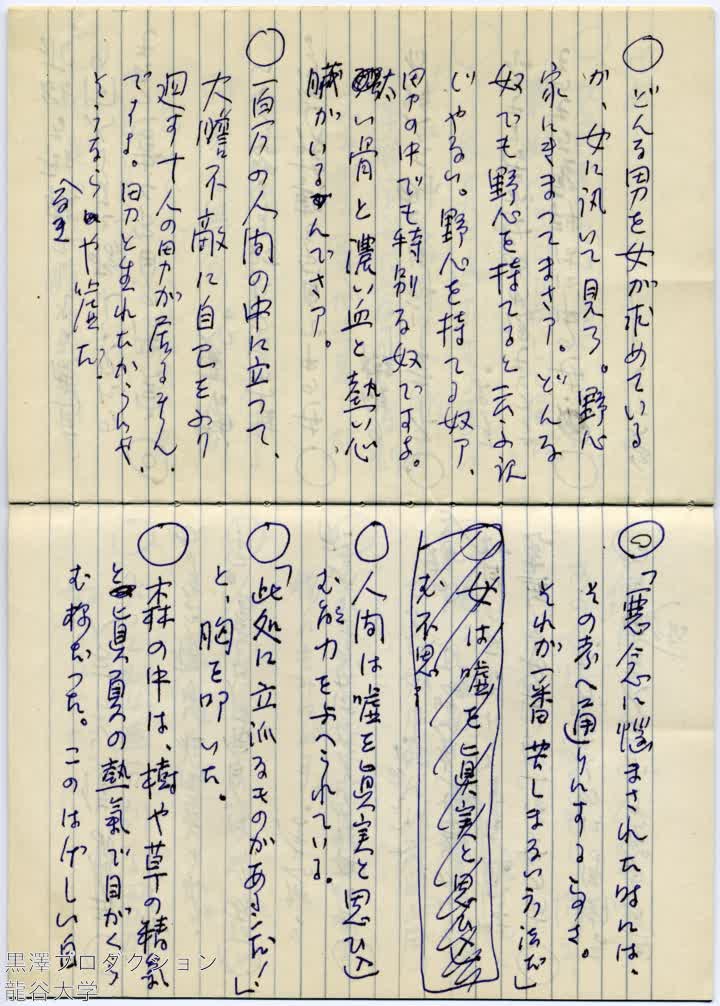 ○ どんな男を女が求めている
か、女に訊いて見ろ。野心
家にきまつてまさア。どんな
奴でも野心を持てると云ふ訳
じやない。野心を持てる奴ア、
男の中でも特別な奴ですよ。
太い骨と濃い血と熱い心
臓がいるんでさア。
○ 一百万の人間の中に立つて、
大膽不敵に自己をふり
廻す十人の男が居ません。
ですよ。男と生れたからにや、
さうならにや嘘だ。
○「悪念に悩まされた時には、
その素へ通りにする事さ。
それが一番苦しまない方法だ」
○ 女は嘘を眞実と思ひ込
む不思
○ 人間は嘘を眞実と思ひ込
む能力を与へられている。
○「此処に立派なものがあるンだ!」
と、胸を叩いた。
○ 森の中は、樹や草の精氣
と眞夏の熱氣で目がくら
む様だつた。このはげしい自
黒澤プロダクション
龍谷大学